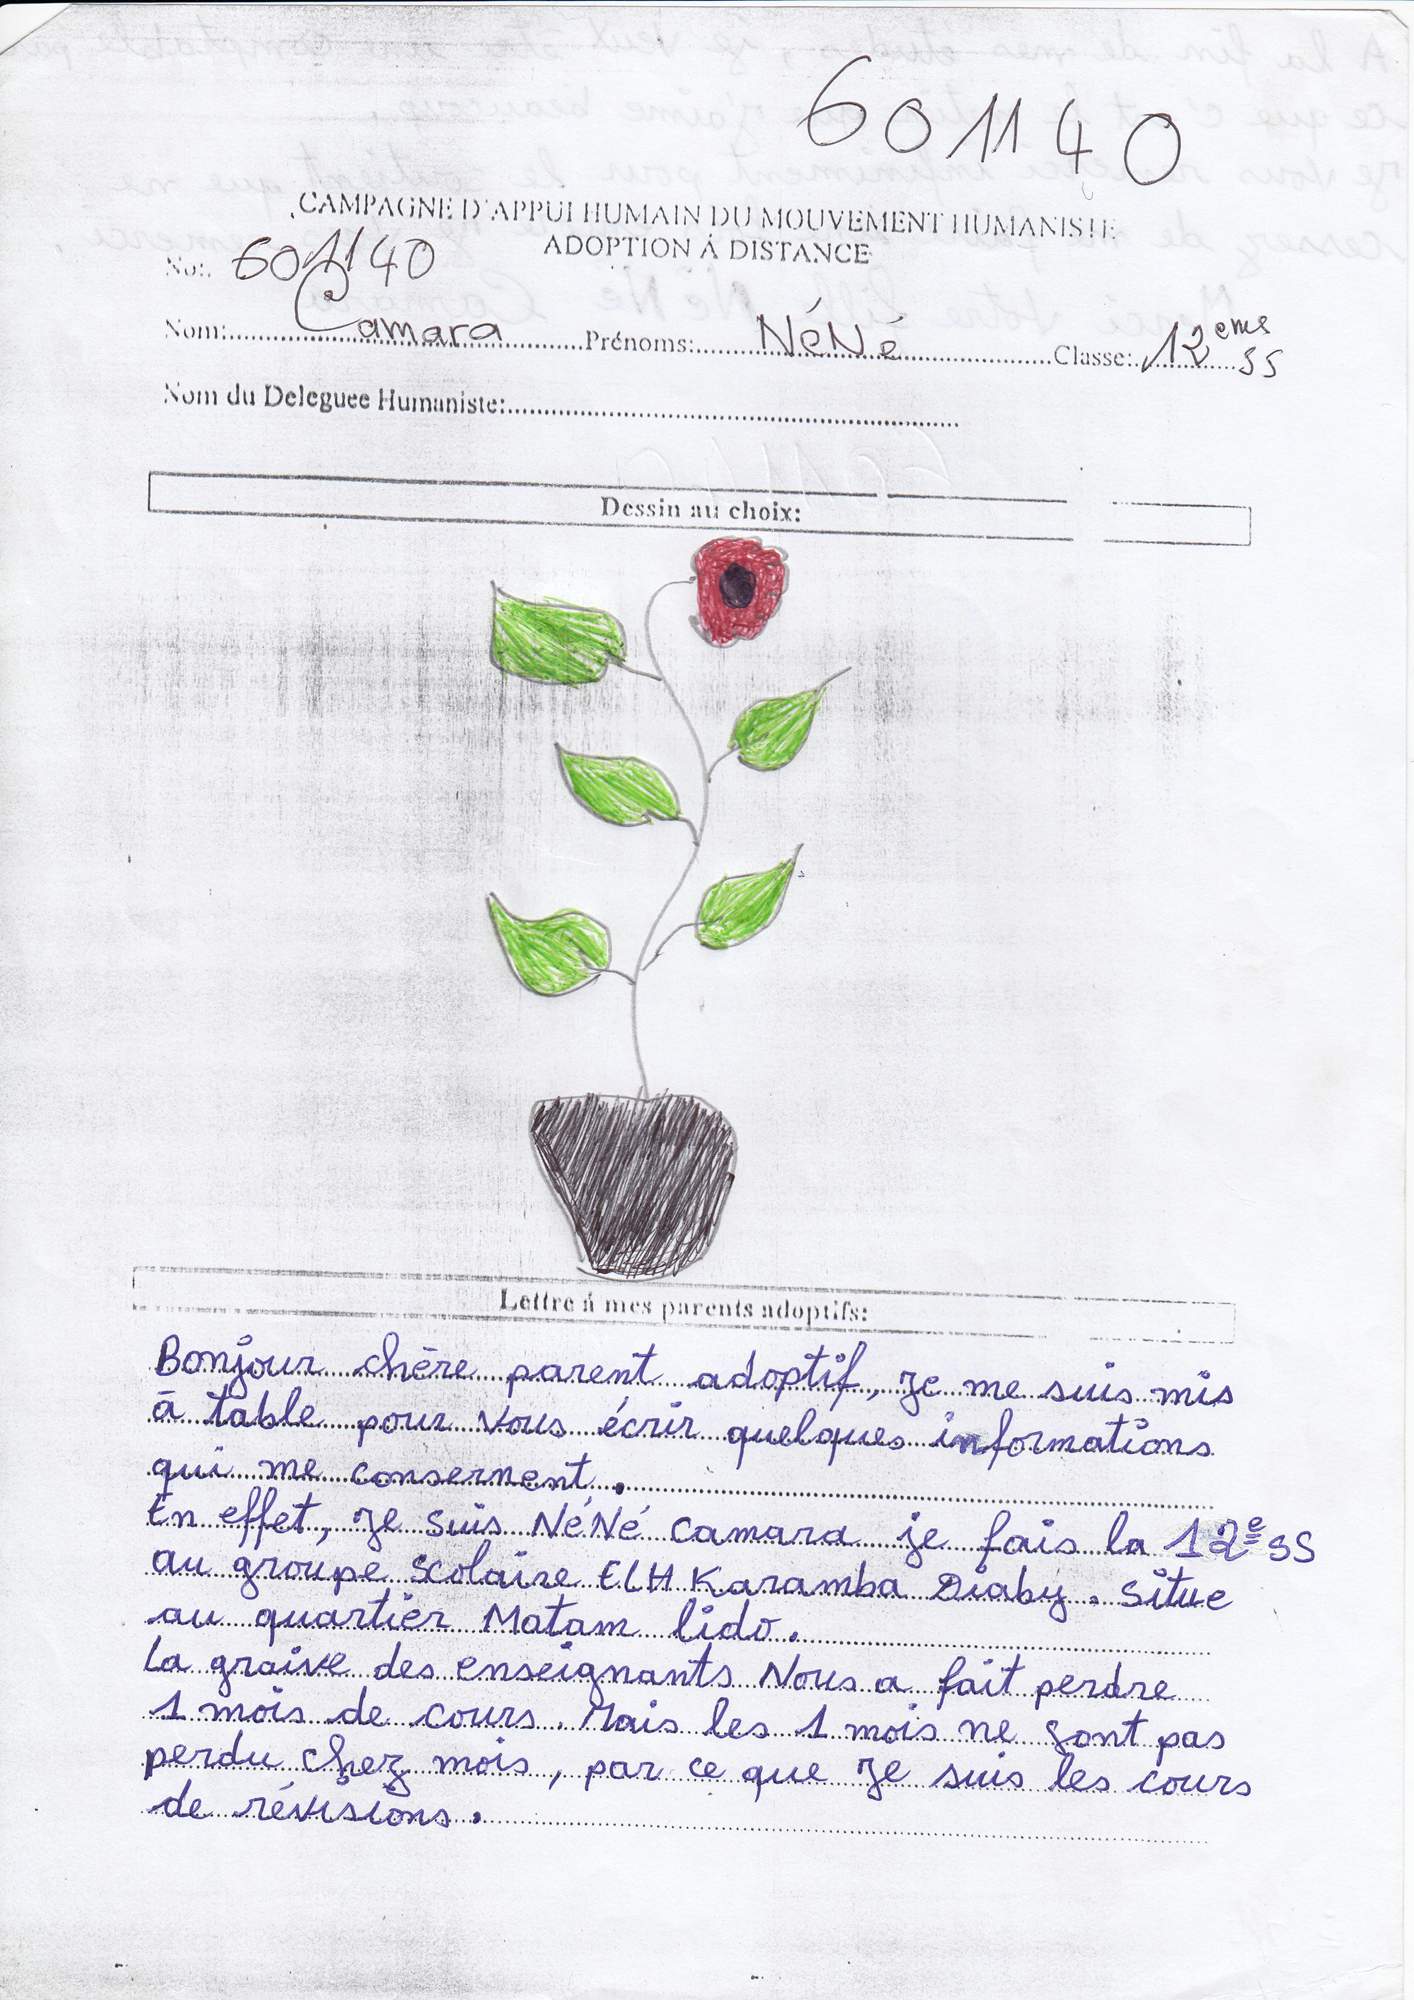 601140
CAMPAGNE D'APPUI HUMAIN DU MOUVEMENT HUMANISTE
ADOPTION Á DISTANCE
No:. 601140
Nom:Camara Prénoms: NéNé Classe: 12ème SS
Nom du Deleguee Humaniste:
Dessin au choix:
Lettre á mes parents adoptifs:
Bonjour chère parent adoptif, je me suis mis
à table pour vous écrir quelques informations
qui me consernent.
En effet, je suis NéNé camara je fais la 12e SS
au groupe scolaire ELH Karamba Diaby. Situe
au quartier Matam lido.
La graive des enseignants Nous a fait perdre
1 mois de cours. Mais les 1 mois ne sont pas
perdu chez mois, par ce que je suis les cours
de révisions.